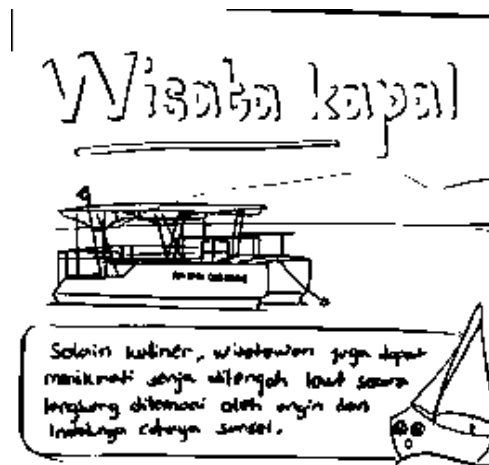 Wisata kapal
Selain kuliner, wisatawan juga dapat
menikmati senja ditengah laut secara
langsung ditemani oleh angin dan
Indahnya cahaya sunset.